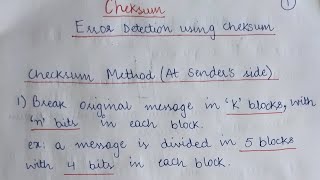 Cheksum
1
Error Detection using Cheksum
Checksum Method (At Sender's side)
1) Break original message in 'K' blocks, with
'n' bits in each block.
ex: a message is divided in 5 blocks
with 4 bits in each block.